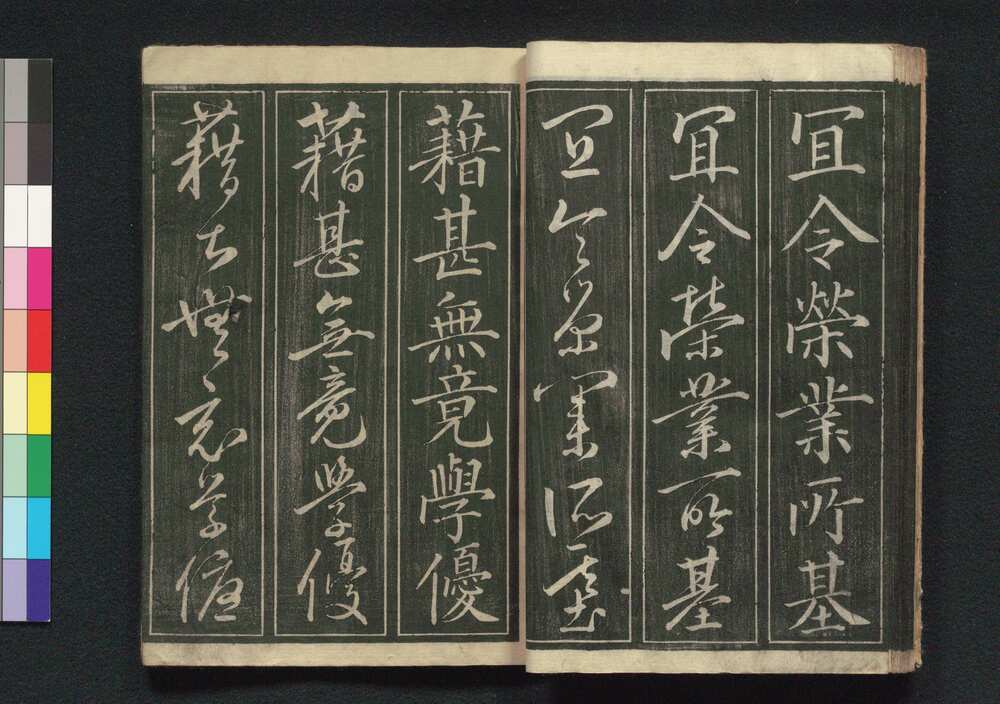 宜令榮業所基
宜令榮業所基
宜令榮業所基
藉甚無竟學優
藉甚無竟學優
藉甚無竟學優